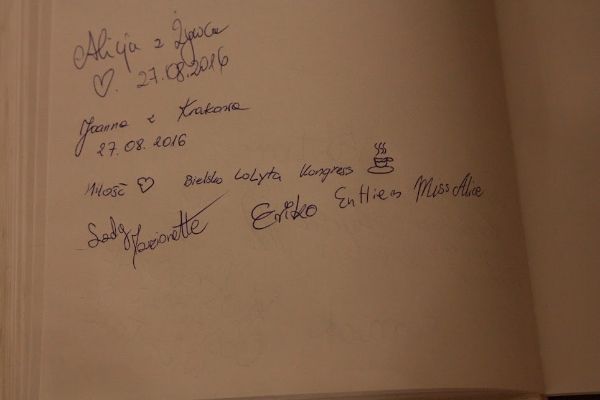 Alicja z Żywca
♡. 27.08.2016
Joanna z Krakowa
27.08.2016
Miłość ♡ Bielsko Lolyta Kongress
Lady Marionette Eriko Enthies Miss Alice